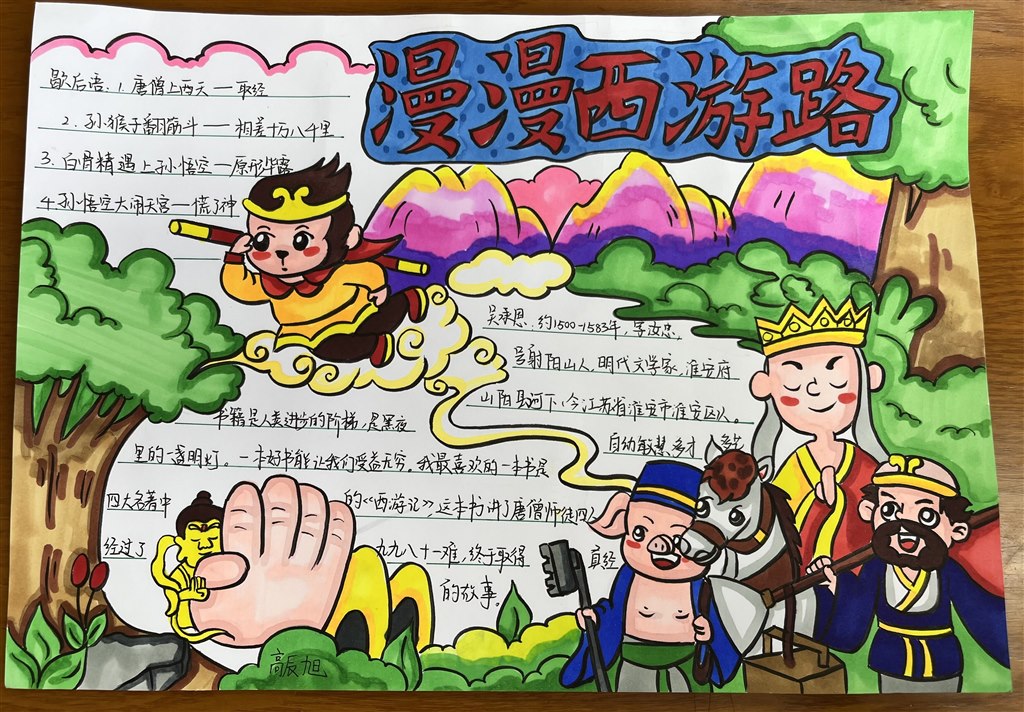 漫漫西游路
歇后语:1.唐僧上西天——取经
2.孙猴子翻筋斗——相差十万八千里
3.白骨精遇上孙悟空——原形毕露
4.孙悟空大闹天宫——慌了神
吴承恩,约1500-1583年,字汝忠,
号射阳山人,明代文学家,淮安府
山阳县河下(今江苏省淮安市淮安区)人。
自幼敏慧,多才多艺
书籍是人类进步的阶梯,是黑夜
里的一盏明灯。一本好书能让我们受益无穷。我最喜欢的一本书是
四大名著中的《西游记》,这本书讲了唐僧师徒四人
经过了九九八十一难,终于取得真经
的故事。
高辰旭